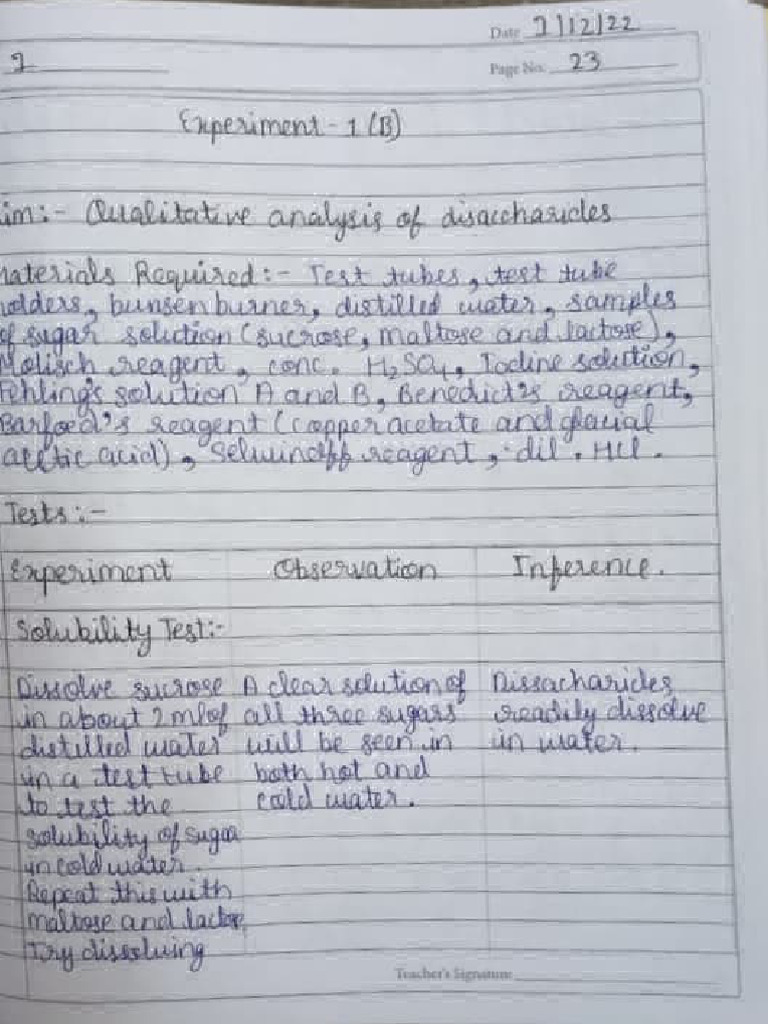 Date 7/12/22
Page No. 23
Experiment - 1 (B)
im:- Qualitative analysis of disaccharides
naterials Required:- Test tubes, test tube
olders, bunsen burner, distilled water, samples
of sugar solution (sucrose, maltose and lactose),
Molisch reagent, conc. H₂SO₄, Iodine solution,
Fehling's solution A and B, Benedict's reagent,
Barfoed's reagent (copper acetate and glacial
acetic acid), Seliwinoff reagent, dil. HCl.
Tests:-
Experiment Observation Inference.
Solubility Test:-
Dissolve sucrose A clear solution of Dissacharides
in about 2 ml of all three sugars readily dissolve
distilled water will be seen in in water.
in a test tube both hot and
to test the cold water.
solubility of sugar
in cold water.
Repeat this with
maltose and lactose
Try dissolving
Teacher's Signature